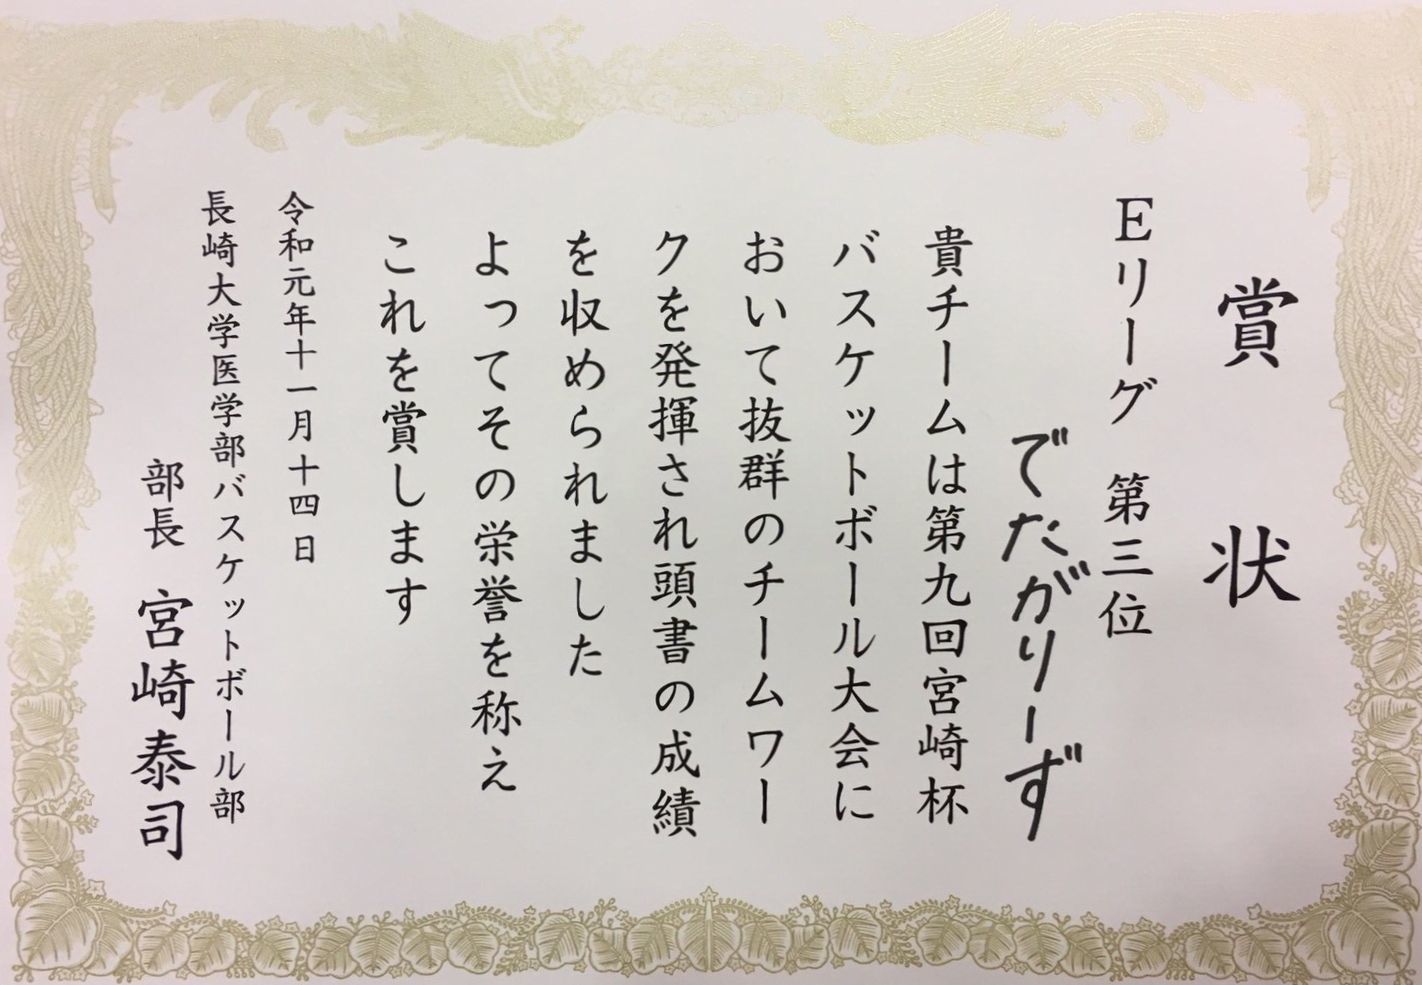 賞状
Eリーグ 第三位
でたがりーず
貴チームは第九回宮崎杯
バスケットボール大会に
おいて抜群のチームワー
クを発揮され頭書の成績
を収められました
よってその栄誉を称え
これを賞します
令和元年十一月十四日
長崎大学医学部バスケットボール部
部長 宮崎泰司